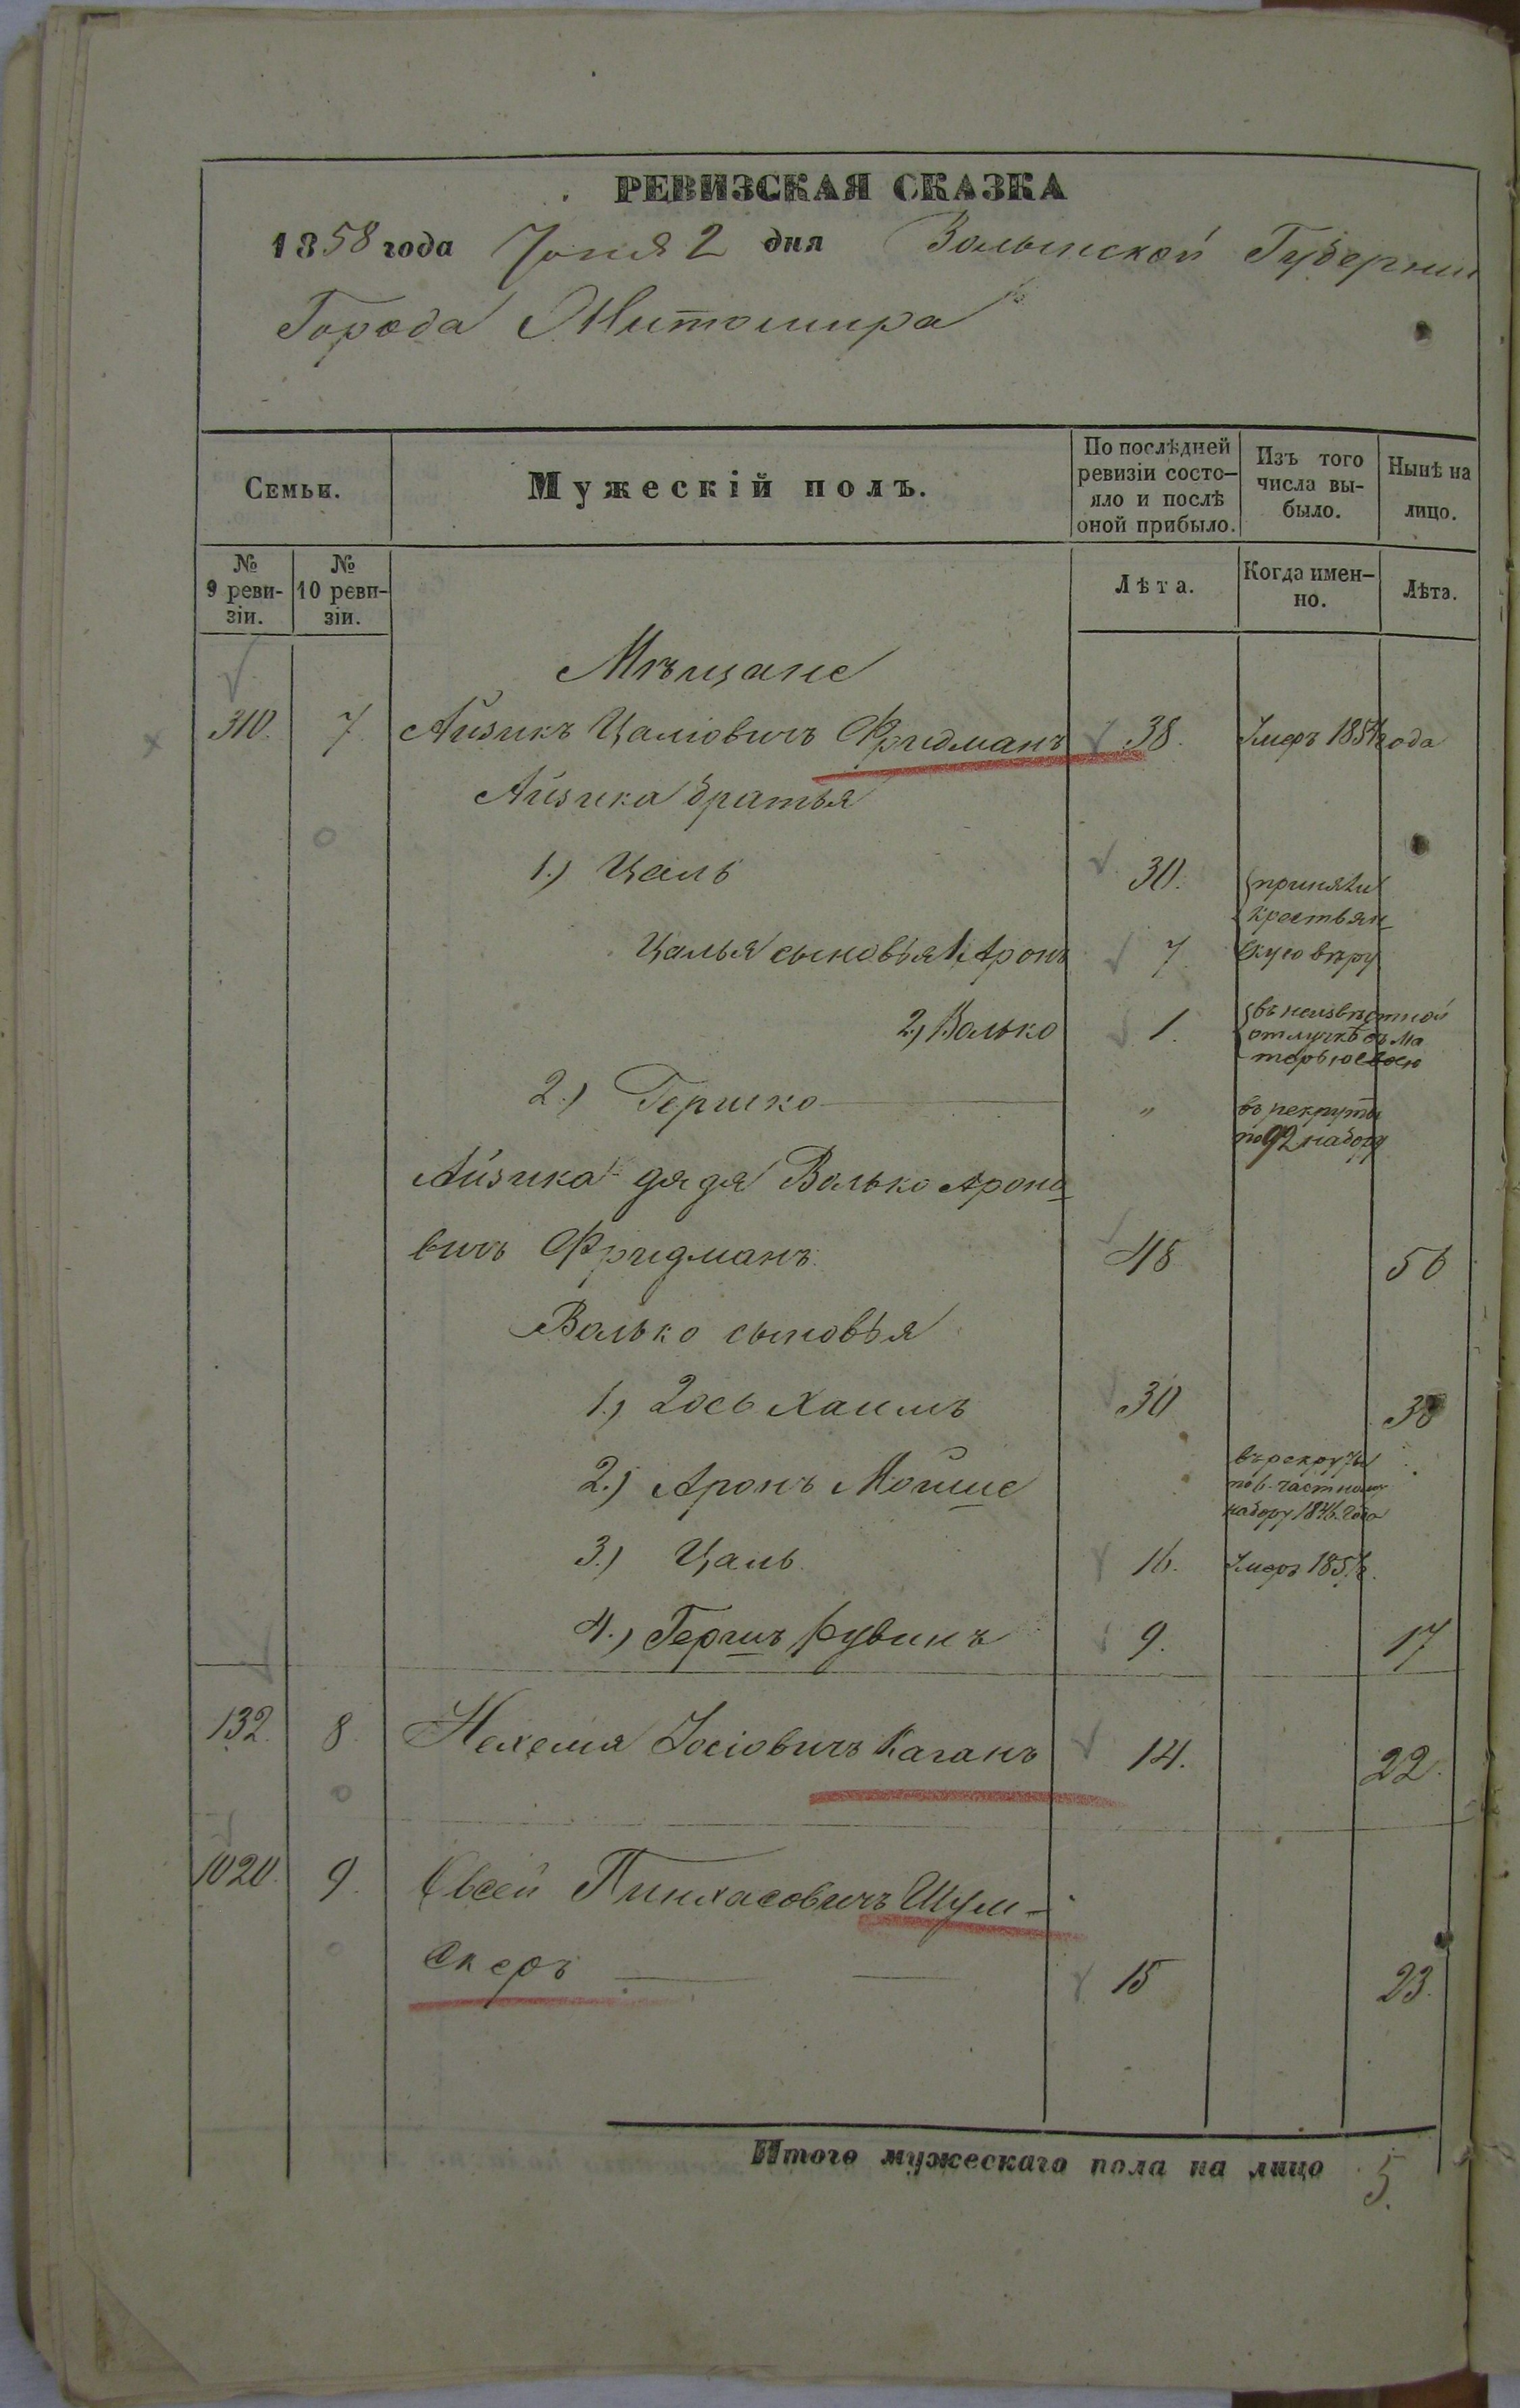 РЕВИЗСКАЯ СКАЗКА
1858 года Іюня 2 дня Волынской Губерніи
Города Житомира
Семьи.
Мужескій полъ.
По послѣдней ревизіи состо-яло и послѣ оной прибыло.
Изъ того числа вы-было.
Нынѣ на лицо.
№ 9 реви-зіи.
№ 10 реви-зіи.
Лѣта.
Когда имен-но.
Лѣта.
Мѣщане
310. 7. Айзикъ Цаліовичъ Фридманъ 38. Умеръ 185 года
Айзика братья
1.) Цаль 30. приняли
крестьян
Цалья сыновья 1, Аронъ 7. скую вѣру
2, Волько 1. въ неизвѣстной
отлучкѣ съ ма
терью своею
2.) Гершко " въ рекруты
по 92 набору
Айзика дядя Волько Ароно
вичъ Фридманъ. 48 56
Волько сыновья
1.) Іось Хаимъ 30 38
2.) Аронъ Мойше въ рекруты
по 6. частному
набору 1846. года
3.) Цаль. 16. Умеръ 185 г.
4.) Гершъ Рувинъ 9. 17
132. 8. Нехемя Іосіовичъ Каганъ 14. 22.
1020. 9. Овсей Пинхасовичъ Шум-
скеръ 15 23.
Итого мужескаго пола на лицо 5.